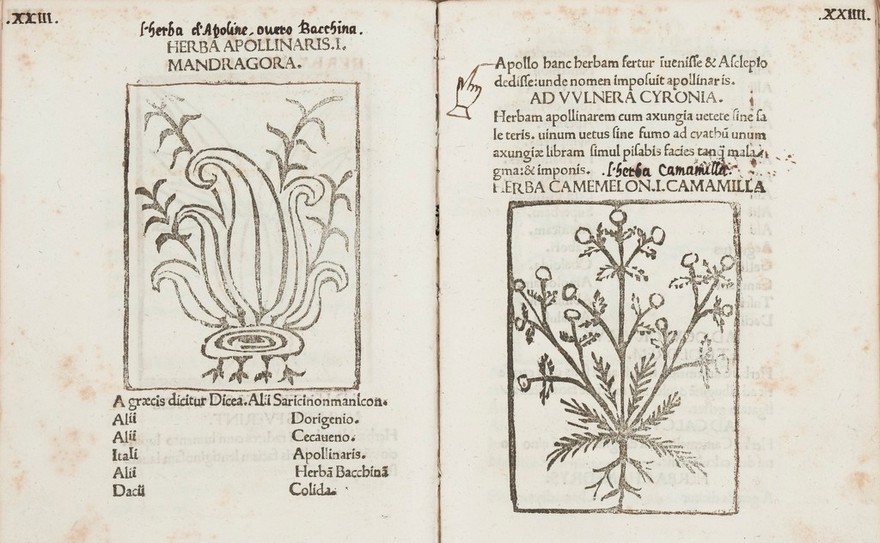 .XXIII.
l'herba d'Apoline. overo Bacchina.
HERBA APOLLINARIS.I.
MANDRAGORA.
A græcis dicitur Dicea. Alii Saricinonmanicon.
Alii Dorigenio.
Alii Cecaueno.
Itali Apollinaris.
Alii Herbā Bacchinā
Dacii Colida.
.XXIIII.
Apollo hanc herbam fertur īuenisse & Asclepio
dedisse: unde nomen imposuit apollinaris.
AD VVLNERA CYRONIA.
Herbam apollinarem cum axungia uetete sine sa
le teris. uinum uetus sine fumo ad cyathū unum
axungiæ libram simul pisabis facies tanq̄ mala
gma: & imponis. l'herba Camamilla.
HERBA CAMEMELON.I.CAMAMILLA